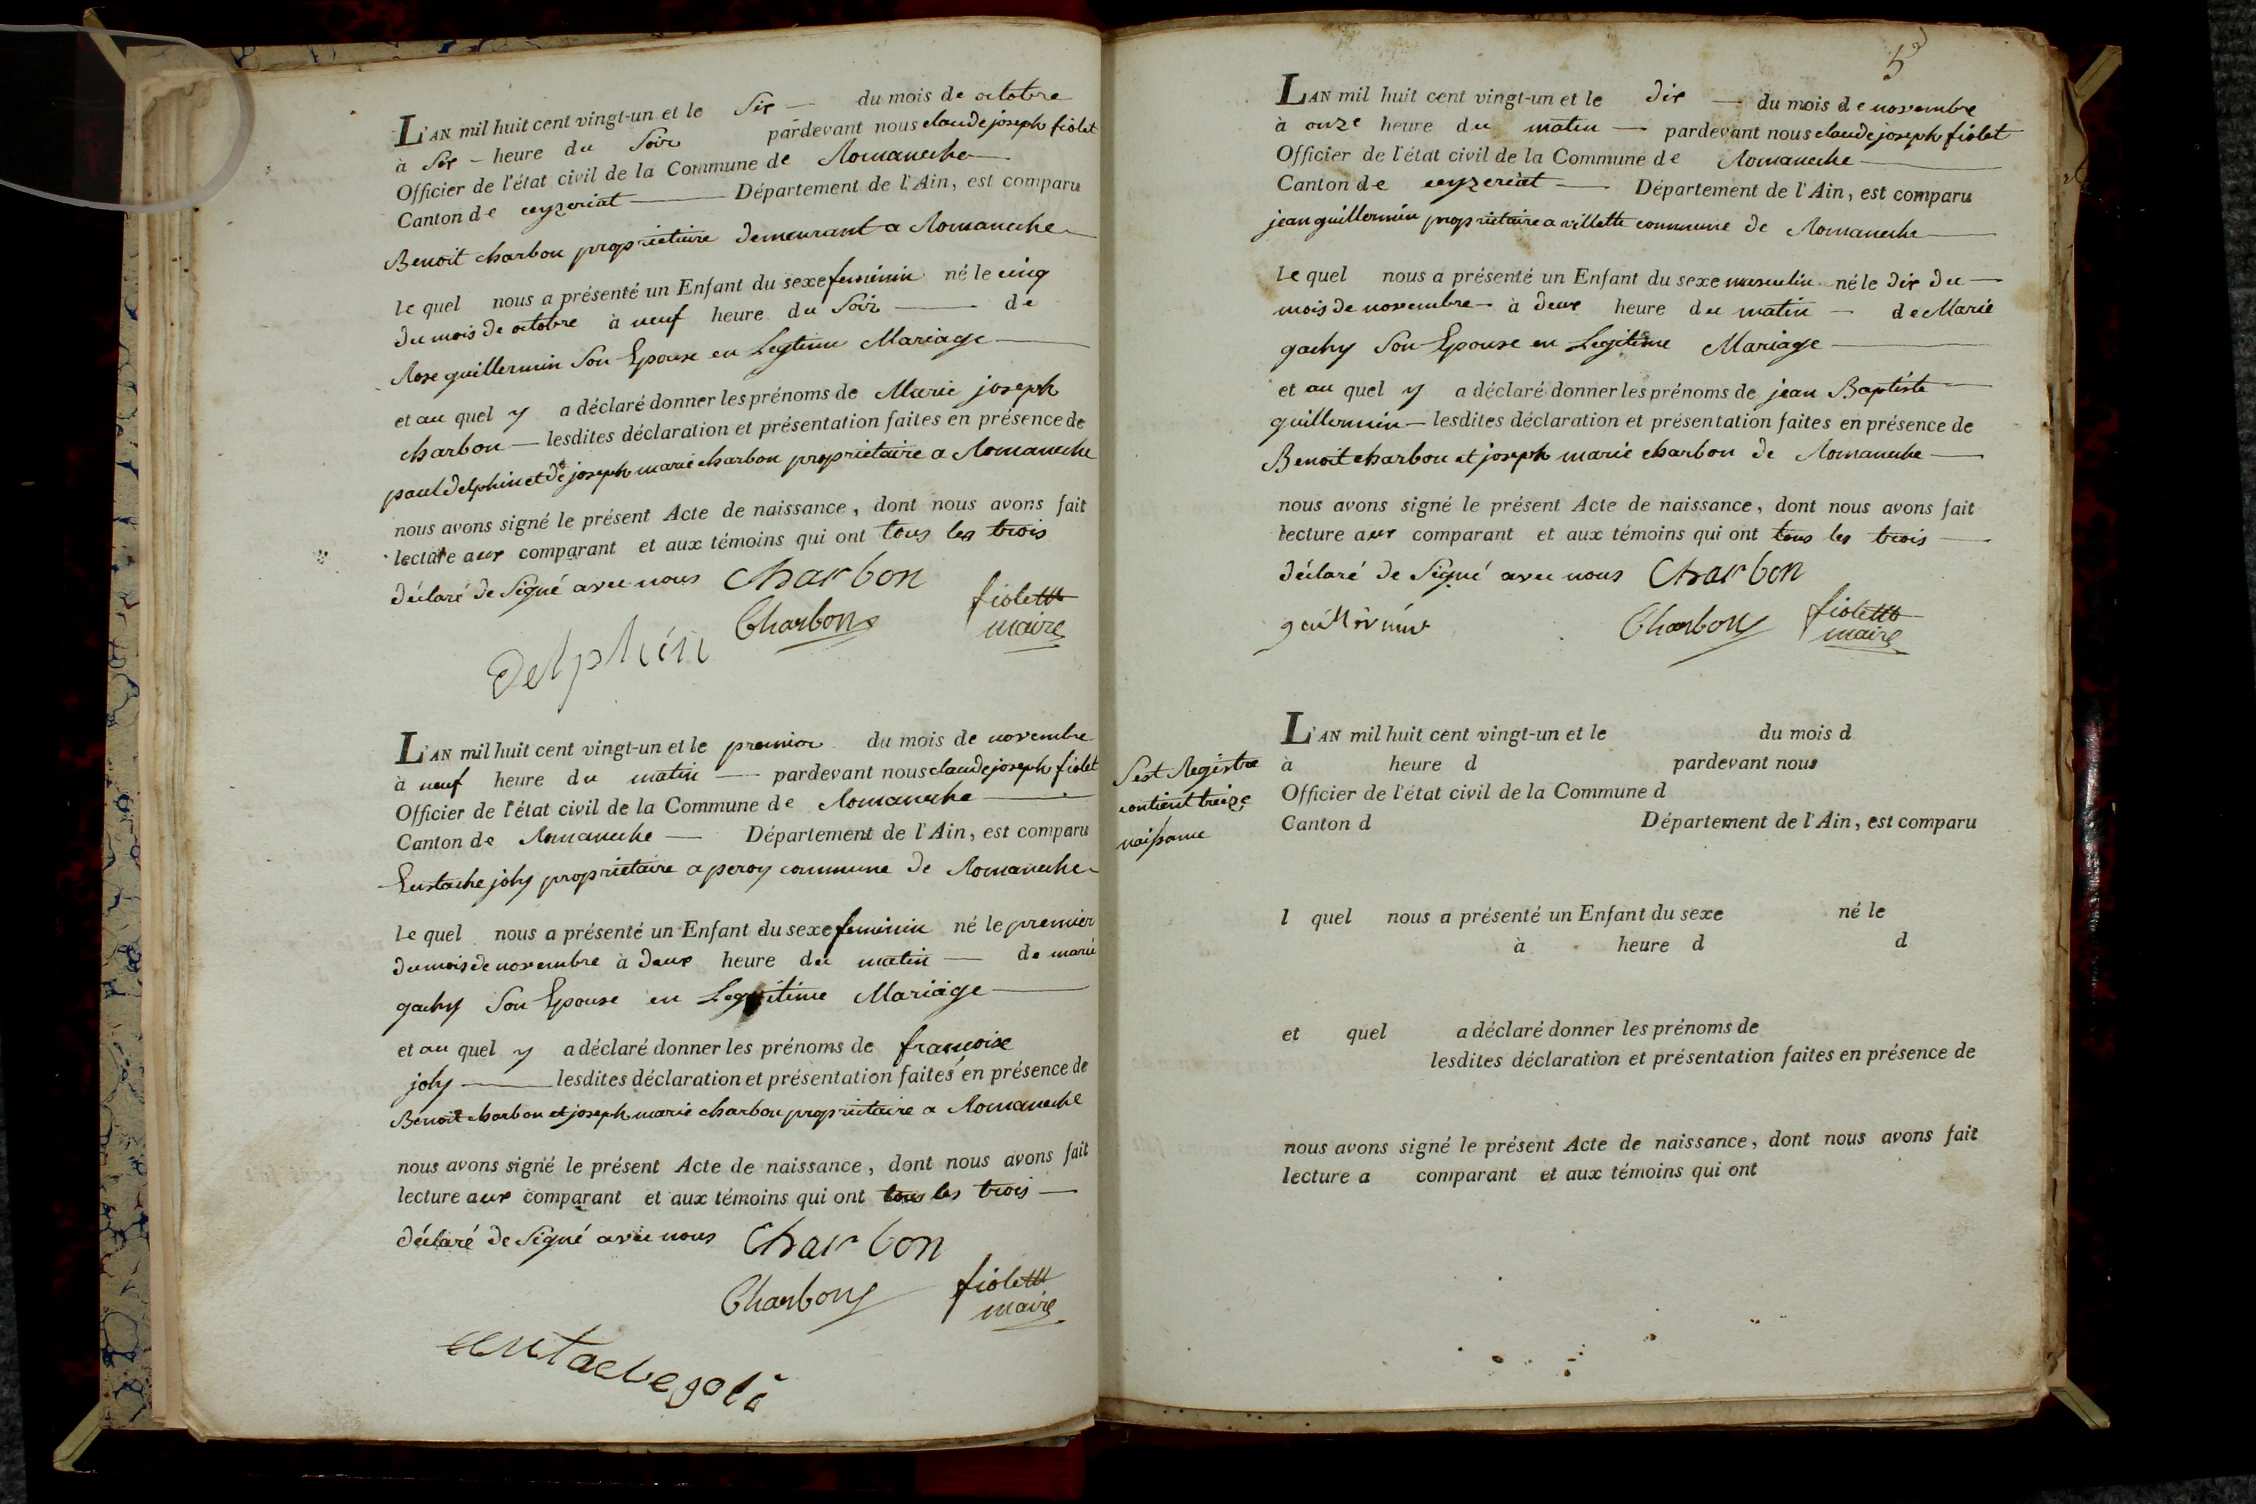 L'AN mil huit cent vingt-un et le Six — du mois de octobre
à Six — heure du Soir pardevant nous claude joseph fiolet
Officier de l'état civil de la Commune de Romaneche —
Canton de ceyzeriat — Département de l'Ain, est comparu
Benoit charbon proprietaire demeurant a Romaneche —
le quel nous a présenté un Enfant du sexe feminin né le cinq
du mois de octobre à neuf heure du Soir — de
Rose guillermin Son Epouse en Legitime Mariage —
et au quel y a déclaré donner les prénoms de Marie joseph
charbon — lesdites déclaration et présentation faites en présence de
paul delphin et de joseph marie charbon proprietaire a Romaneche
nous avons signé le présent Acte de naissance, dont nous avons fait
lecture aux comparant et aux témoins qui ont tous les trois
déclaré de Signé avec nous Charbon
Charbon fiolet
maire
Delphin
L'AN mil huit cent vingt-un et le premier du mois de novembre
à neuf heure du matin — pardevant nous claude joseph fiolet
Officier de l'état civil de la Commune de Romaneche —
Canton de Romaneche — Département de l'Ain, est comparu
Eustache joly proprietaire a peroy commune de Romaneche —
le quel nous a présenté un Enfant du sexe feminin né le premier
du mois de novembre à deux heure du matin — de marie
gachy Son Epouse en Legitime Mariage —
et au quel y a déclaré donner les prénoms de françoise
joly — lesdites déclaration et présentation faites en présence de
Benoit charbon et joseph marie charbon proprietaire a Romaneche
nous avons signé le présent Acte de naissance, dont nous avons fait
lecture aux comparant et aux témoins qui ont tous les trois —
déclaré de Signé avec nous Charbon
Charbon fiolet
maire
eustache goli
5
L'AN mil huit cent vingt-un et le dix — du mois de novembre
à onze heure du matin — pardevant nous claude joseph fiolet
Officier de l'état civil de la Commune de Romaneche —
Canton de ceyzeriat — Département de l'Ain, est comparu
jean guillermin proprietaire a villette commune de Romaneche —
le quel nous a présenté un Enfant du sexe masculin né le dix du —
mois de novembre — à deux heure du matin — de Marie
gachy Son Epouse en Legitime Mariage —
et au quel y a déclaré donner les prénoms de jean Baptiste —
guillermin — lesdites déclaration et présentation faites en présence de
Benoit charbon et joseph marie charbon de Romaneche —
nous avons signé le présent Acte de naissance, dont nous avons fait
lecture aux comparant et aux témoins qui ont tous les trois —
déclaré de Signé avec nous Charbon
guillermin Charbon fiolet
maire
Sest Registre
contient treize
naissance
L'AN mil huit cent vingt-un et le du mois d
à heure d pardevant nous
Officier de l'état civil de la Commune d
Canton d Département de l'Ain, est comparu
l quel nous a présenté un Enfant du sexe né le
à heure d d
et quel a déclaré donner les prénoms de
lesdites déclaration et présentation faites en présence de
nous avons signé le présent Acte de naissance, dont nous avons fait
lecture a comparant et aux témoins qui ont